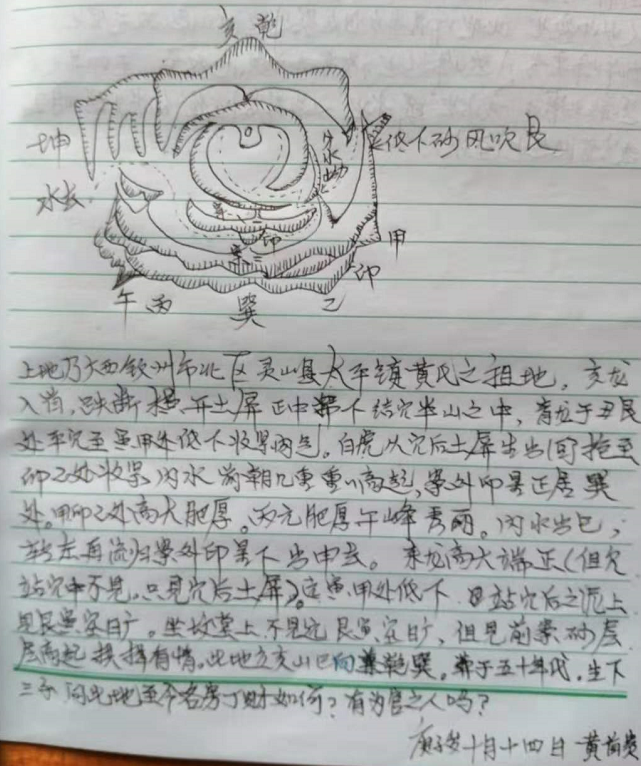 亥 乾
坤
低下砂风吹艮
水去
案一
印
案二
甲
卯
午 丙 巽 乙
上地乃广西钦州市北区灵山县太平镇黄氏之祖地。亥龙
入首，跌断 开土屏正中 下结穴半山之中，青龙于丑艮
处 至寅甲处低下收 内气。白虎从穴后土屏生出回抱至
卯乙处收 内水 前朝几重重重高起，案外印星正居巽
处。甲卯乙处高大肥厚。丙 肥厚午峰秀丽。内水出
转左再流归案外印星下出中去。来龙高大端正（但
站穴中不见，只见穴后土屏）。 寅甲处低下 站穴后之 上
见艮寅空旷。坐坟堂上不见 艮寅空旷，但见前案砂层
层高起 有情。此地立亥山巳向兼乾巽。葬于五十年代，生下
三子 问此地至今各房丁财如何？有为官之人吗？
庚子岁十月十四日 黄